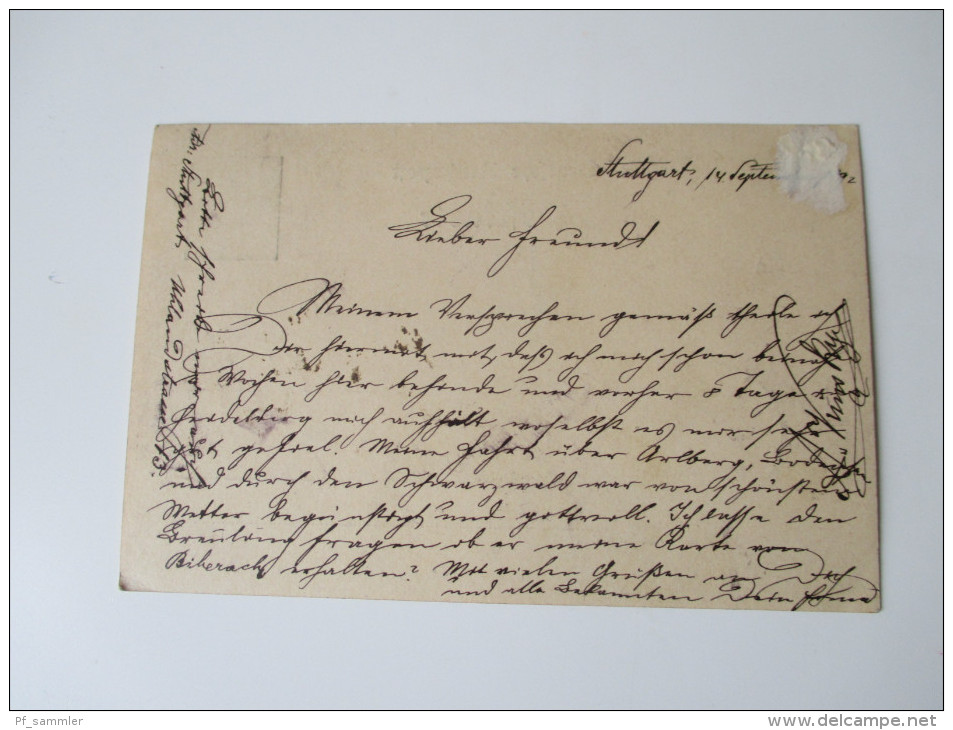 Stuttgart, 14. Septem
Lieber Freund!
Meinem Versprechen gemäß theile ich
Dir hiermit mit, daß ich mich schon beinahe
Wochen hier befinde und vorher 8 Tage in
Heidelberg mich aufhielt woselbst es mir sehr
gut gefiel. Meine Fahrt über Arlberg, Bodensee
und durch den Schwarzwald war von schönstem
Wetter begünstigt und gottvoll. Ich lasse den
fragen ob er meine Karte von
Biberach erhalten? Mit vielen Grüßen an Dich
und alle Bekannten Dein
Bitte schreib mir
Adr. Stuttgart, Uhlandstrasse
Pf_sammler
www.delcampe.net